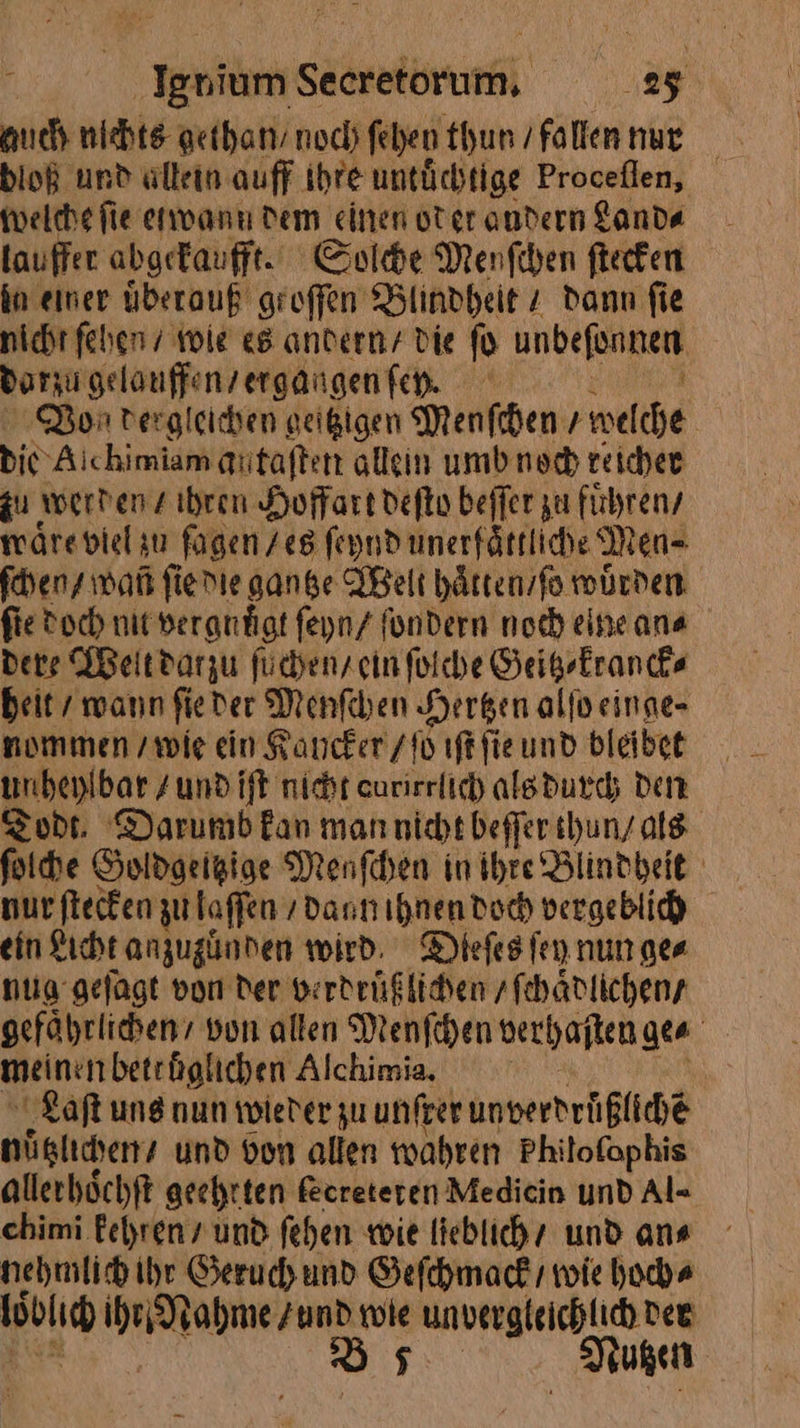 Ignium Secretorum. 25
auch nichts gethan/ noch ſehen thun / fallen nur
bloß und allein auff ihre untuͤchtige Proceſſen,
welche ſie etwann dem einen oder andern Land⸗
lauffer abgekaufft. Solche Menſchen ſtecken
in einer uͤberauß groſſen Blindheit / dann ſie
nicht ſehen / wie es andern/ die ſo unbeſonnen
darzu gelauffen / ergangen ſey.
Von dergleichen geitzigen Menſchen / welche
die Alchimiam antaſten allein umb noch reicher
zu werden / ihren Hoffart deſto beſſer zu fuͤhren/
waͤre viel zu ſagen / es ſeynd unerſaͤttliche Men-
ſchen / wañ ſie die gantze Welt haͤtten/ſo wuͤrden
ſie doch nit vergnuͤgt ſeyn/ ſondern noch eine an⸗
dere Welt darzu ſuchen/ ein ſolche Geitz⸗kranck⸗
heit / wann ſie der Menſchen Hertzen alſo einge-
nommen / wie ein Kancker / ſo iſt ſie und bleibet
unheylbar / und iſt nicht curirrlich als durch den
Todt. Darumb kan man nicht beſſer thun/ als
ſolche Goldgeitzige Menſchen in ihre Blindheit
nur ſtecken zu laſſen / dann ihnen doch vergeblich
ein Licht anzuzuͤnden wird. Dieſes ſey nun ge⸗
nug geſagt von der verdruͤßlichen / ſchaͤdlichen/
gefaͤhrlichen/ von allen Menſchen verhaſten ge⸗
meinen betruͤglichen Alchimia.
Laſt uns nun wieder zu unſrer unverdruͤßlichẽ
nuͤtzlichen/ und von allen wahren Philoſophis
allerhoͤchſt geehrten ſecreteren Medicin und Al-
chimi kehren / und ſehen wie lieblich / und an⸗
nehmlich ihr Geruch und Geſchmack / wie hoch⸗
loͤblich ihr Nahme / und wie unvergleichlich der
B 5 Nutzen